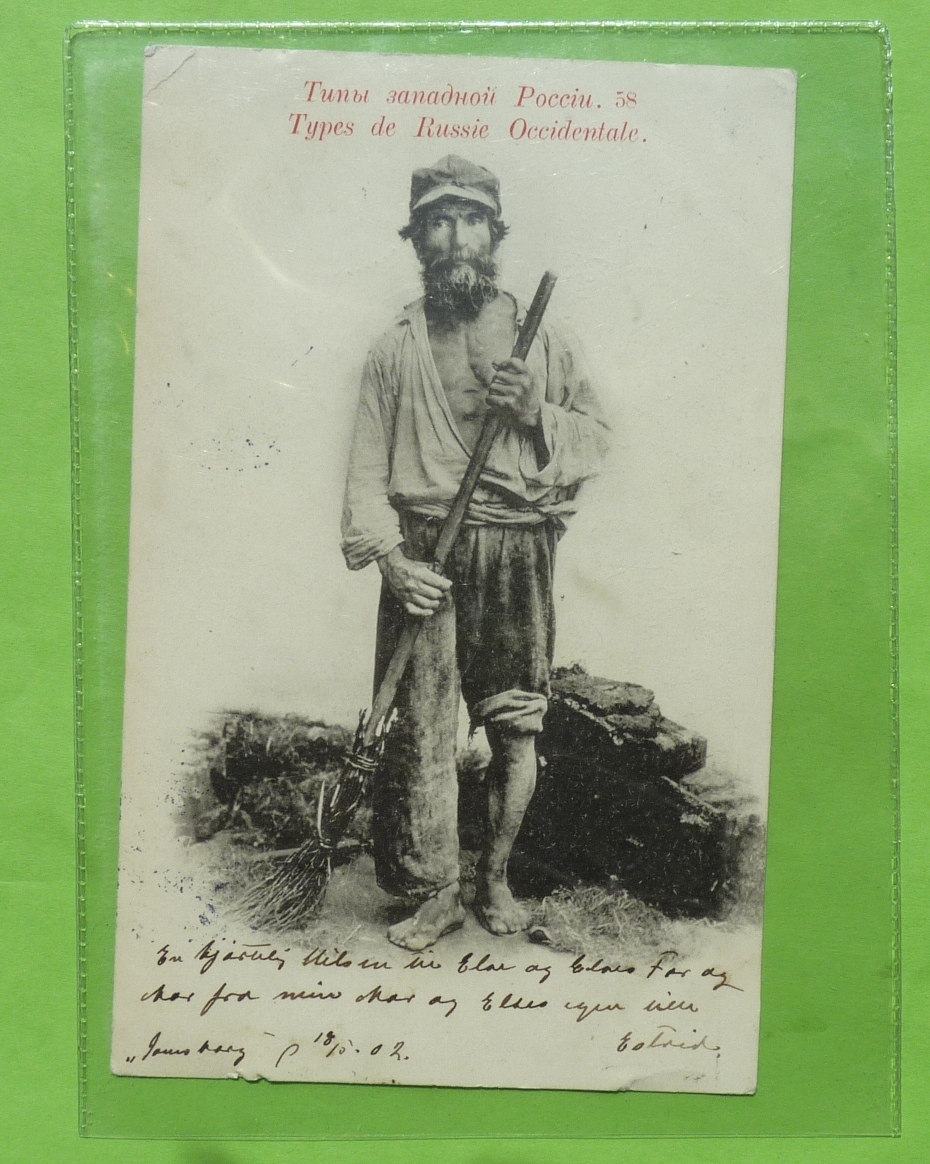 Типы западной Россіи. 58
Types de Russie Occidentale.
En kjærlig Hilsen til Else og Elses Far og
Mor fra min Mor og Elses egen lille
„Jomsborg” 18/5.02. Estrid.